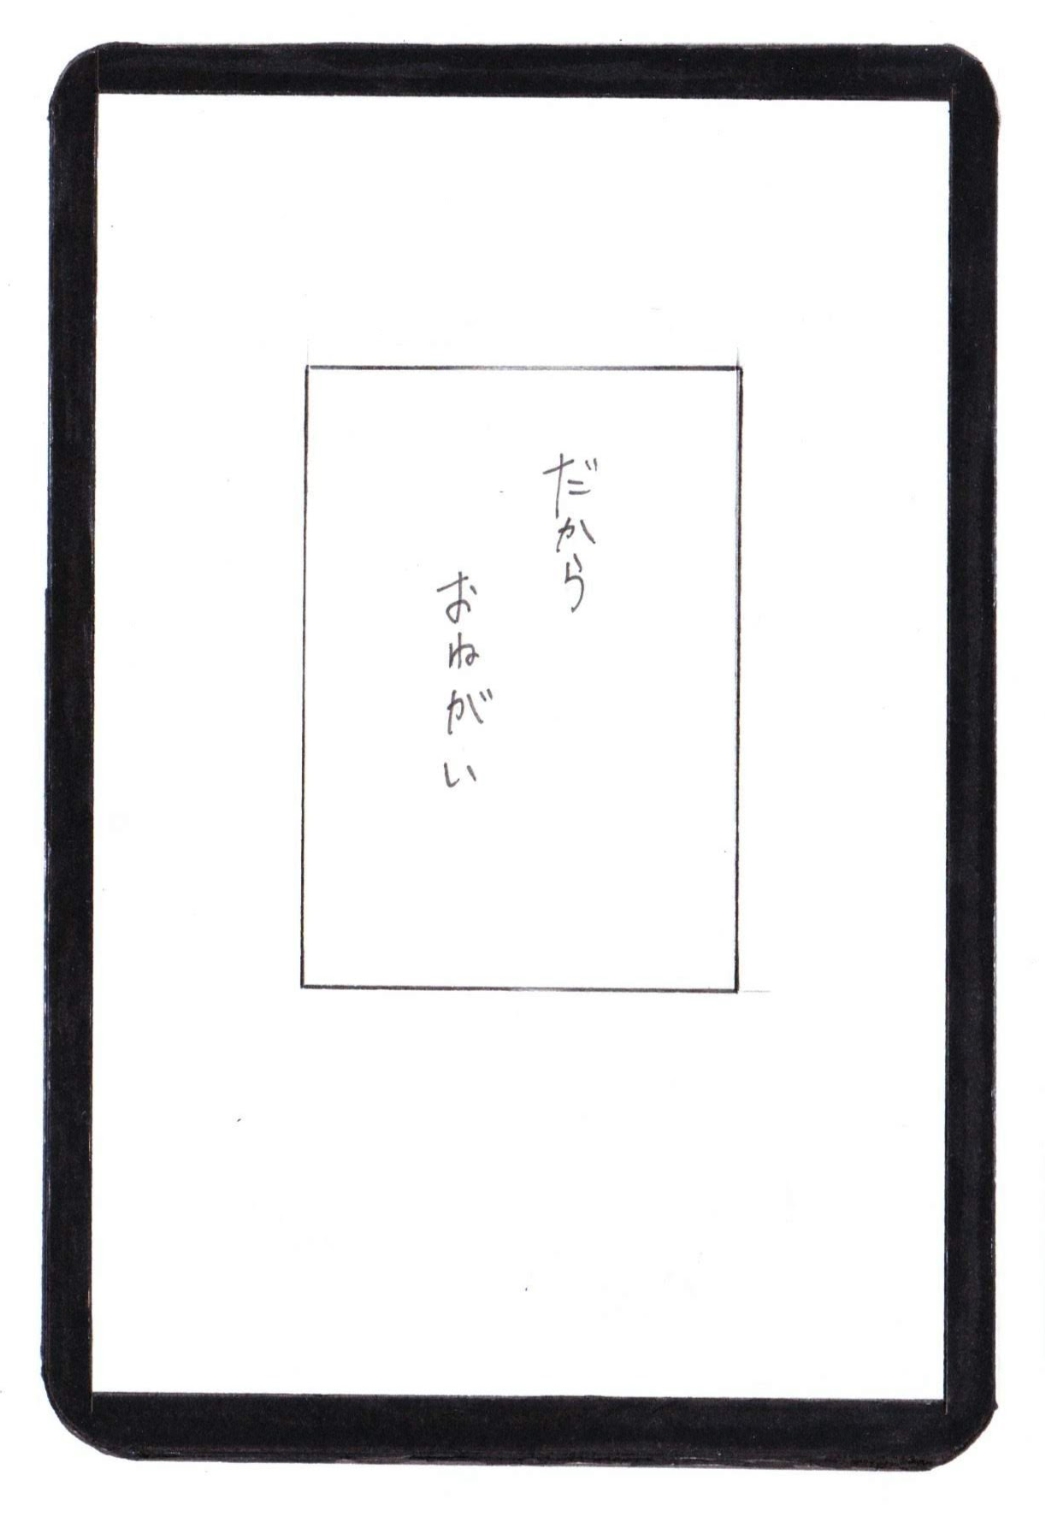 だから
おねがい